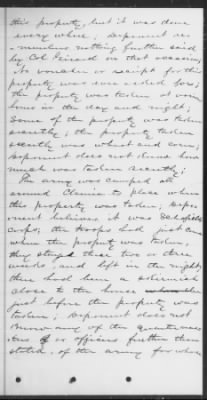 this property, but it was done
every where; Deponent re-
members nothing further said
by Col Girard on that occasion;
No voucher or receipt for this
property was ever asked for;
the property was taken at various
hours in the day and night;
Some of the property was taken
secretly; the property taken
secretly was wheat and corn;
Deponent does not know how
much was taken secretly;
The army was camped all
around Claim't place when
this property was taken; Depo-
nent believes it was Schofields
Corps; the troops had just come
when the property was taken,
they stayed there two or three
weeks, and left in the night;
there had been a skirmish
close to the house
just before the property was
taken; Deponent does not
know any of the quartermas-
ters or officers further than
stated, of the army for whose